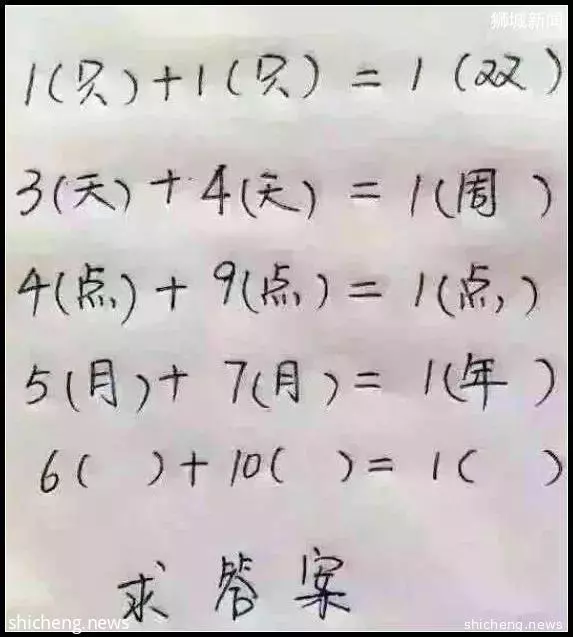 狮城新闻
1(只)+1(只)=1(双)
3(天)+4(天)=1(周)
4(点)+9(点)=1(点)
5(月)+7(月)=1(年)
6( )+10( )=1( )
求答案
shicheng.news shicheng.news